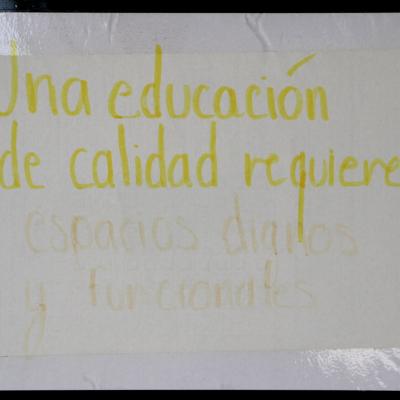 Una educación
de calidad requiere
espacios dignos
y funcionales